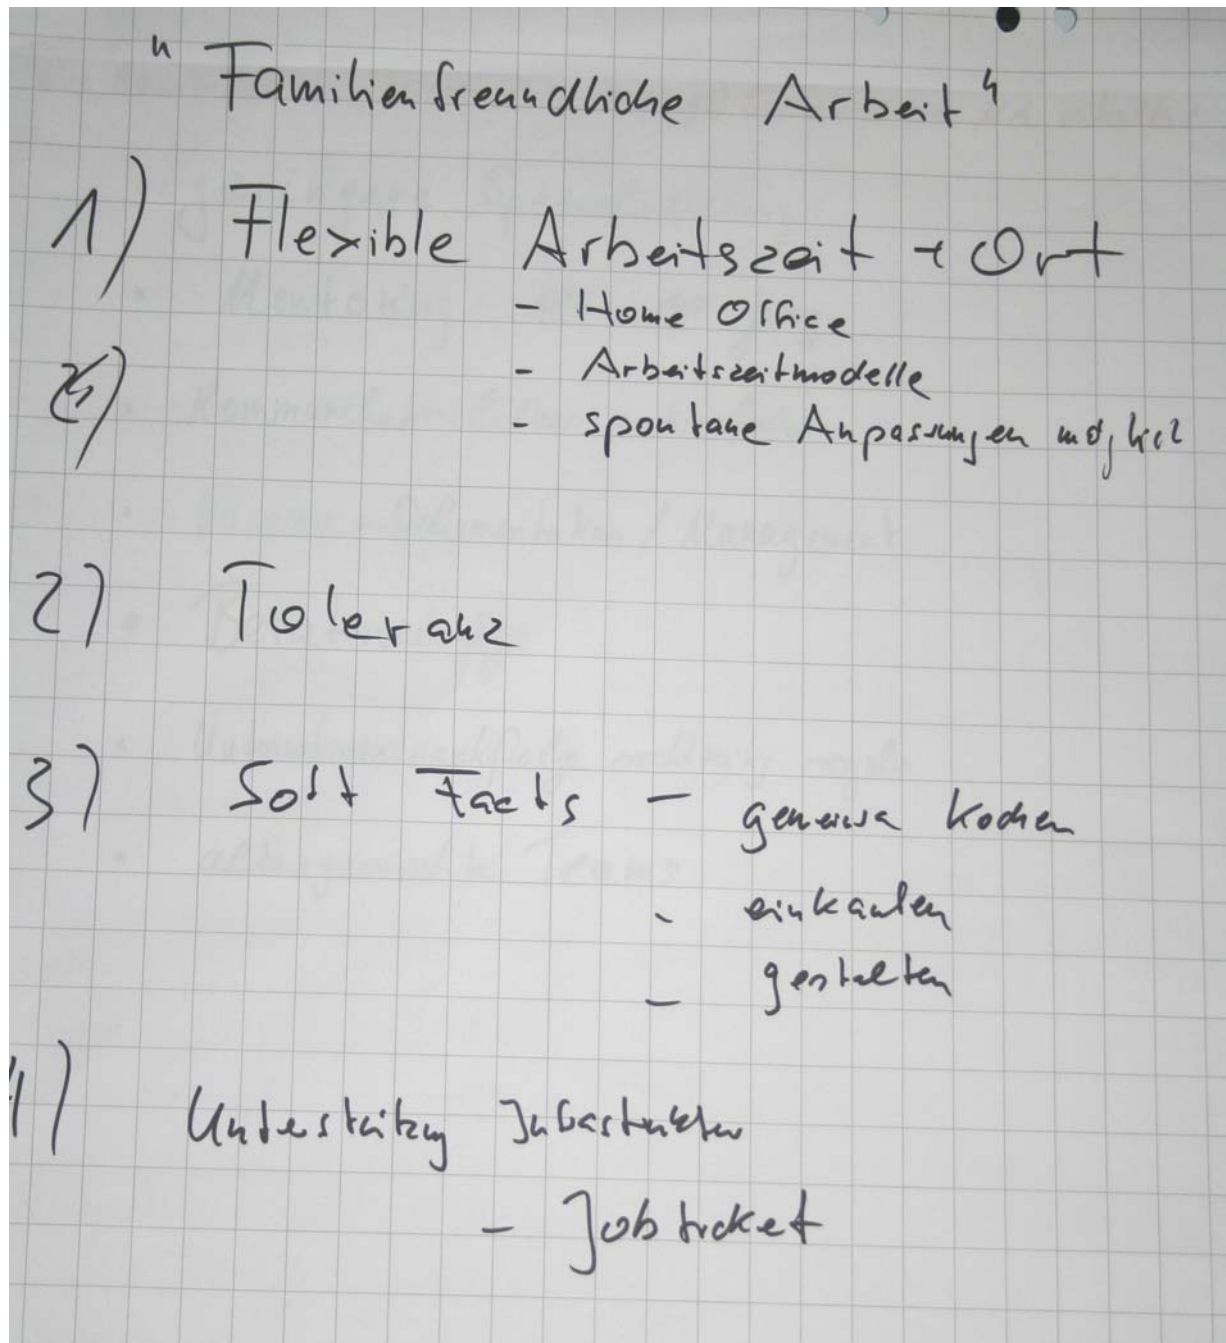 "Familienfreundliche Arbeit"
1) Flexible Arbeitszeit + Ort
- Home Office
- Arbeitszeitmodelle
- spontane Anpassungen möglich
2) Toleranz
3) Soft Facts - gemeinsa kochen
- einkaufen
- gestalten
4) Unterstützung Infrastruktur
- Jobticket